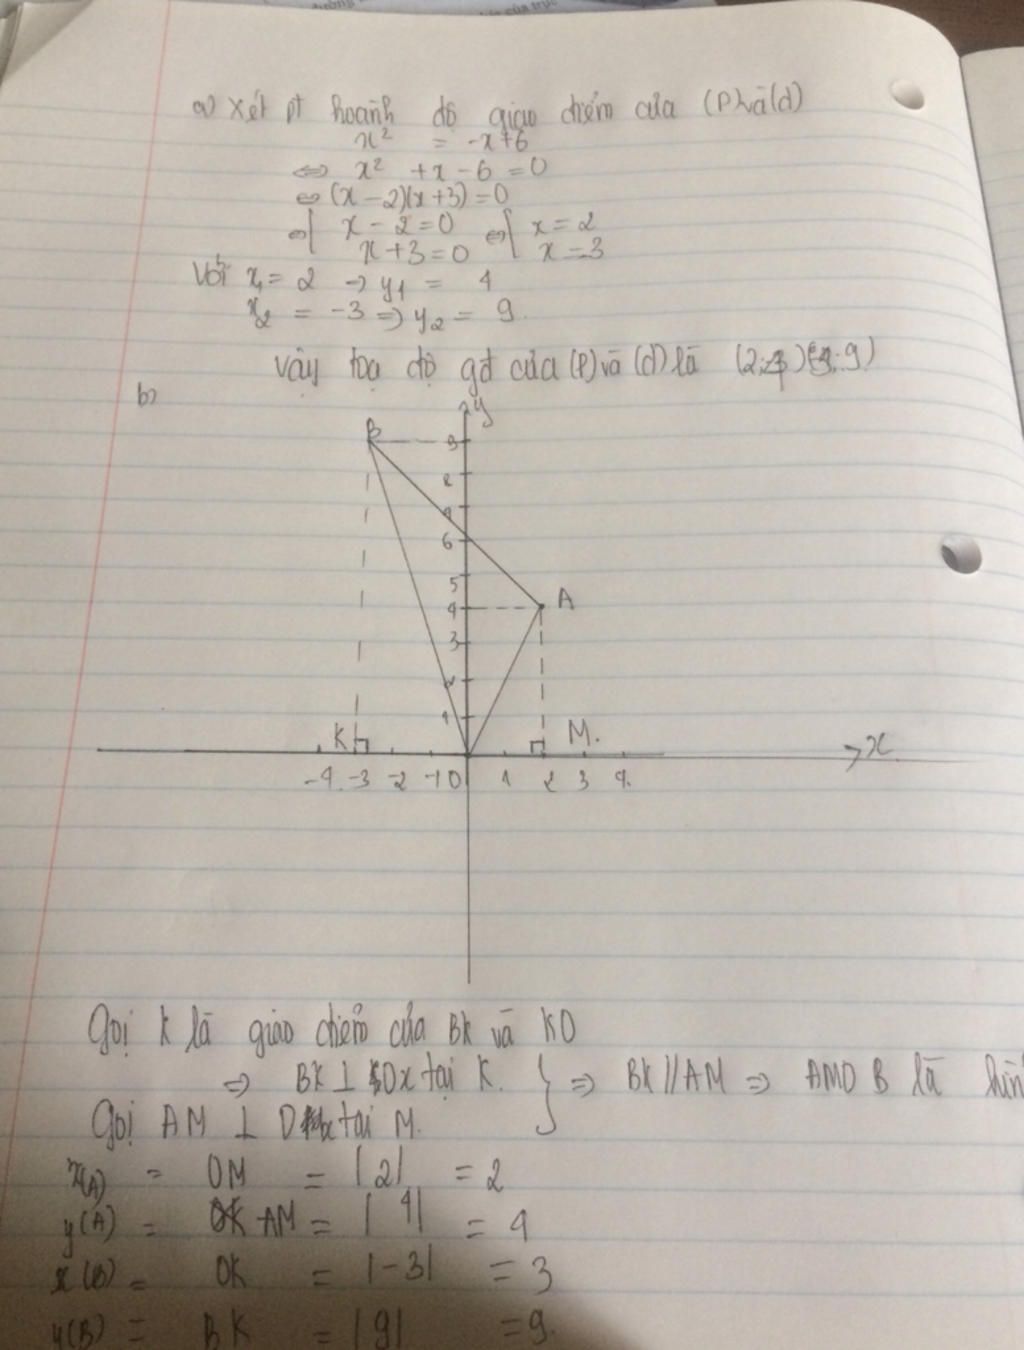 a) Xét pt hoành độ giao điểm của (P) và (d)
x² = -x+6
⇔ x² + x - 6 = 0
⇔ (x-2)(x+3) = 0
⇔ [ x - 2 = 0 ⇔ [ x = 2
x + 3 = 0 x = -3
Với x₁ = 2 → y₁ = 4
x₂ = -3 ⇒ y₂ = 9.
Vậy toạ độ gđ của (P) và (d) là (2;4) (-3;9)
b)
y
B
9
8
7
6
5
4 A
3
2
1
K M. x
-4 -3 -2 -1 0 1 2 3 4
Gọi K là giao điểm của BK và KO
⇒ BK ⊥ Ox tại K. } ⇒ BK // AM ⇒ AMOB là hìn
Gọi AM ⊥ Ox tại M.
x(A) = OM = |2| = 2
y(A) = AM = |4| = 4
x(B) = OK = |-3| = 3
y(B) = BK = |9| = 9.